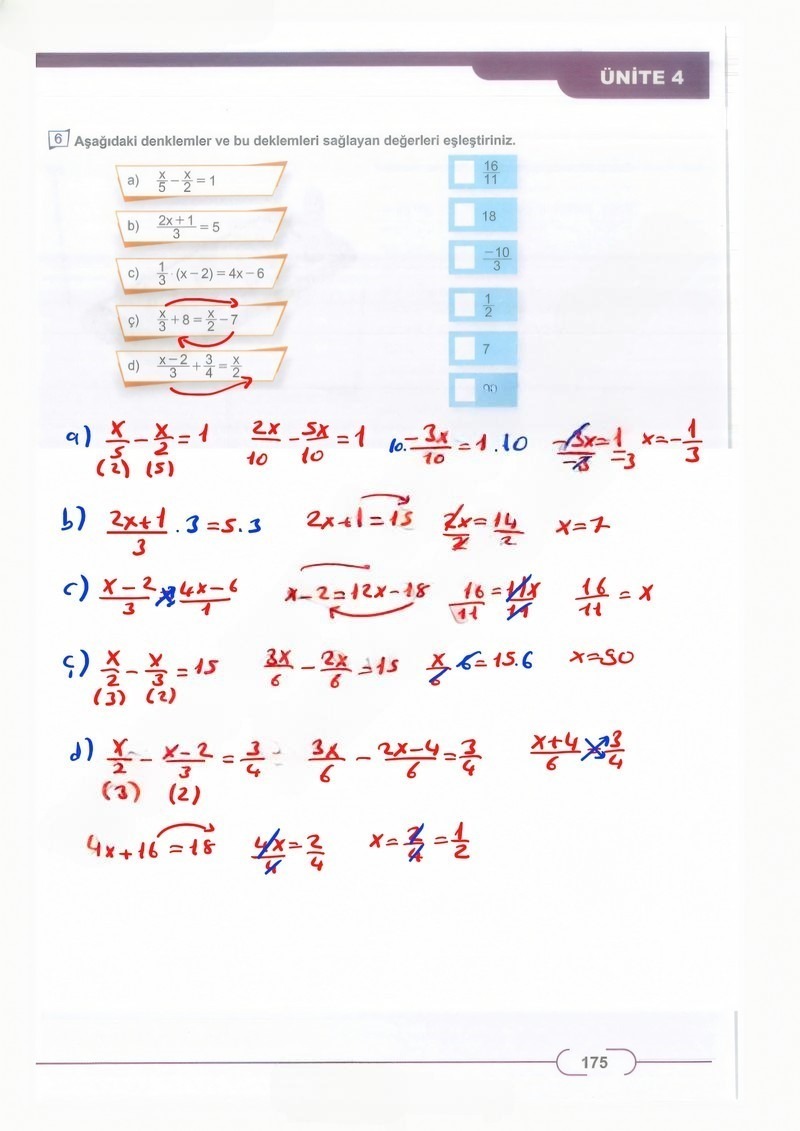 ÜNİTE 4
6 Aşağıdaki denklemler ve bu deklemleri sağlayan değerleri eşleştiriniz.
a) x/5 − x/2 = 1
16/11
b) (2x+1)/3 = 5
18
c) 1/3 · (x−2) = 4x−6
−10/3
ç) x/3 + 8 = x/2 − 7
1/2
d) (x−2)/3 + 3/4 = x/2
7
90
a) x/5 − x/2 = 1 (2) (5) 2x/10 − 5x/10 = 1 10. −3x/10 = 1 . 10 −3x/−3 = 1/−3 x = −1/3
b) (2x+1)/3 . 3 = 5 . 3 2x+1 = 15 2x/2 = 14/2 x = 7
c) (x−2)/3 (4x−6)/1 x−2 = 12x−18 16/11 = 11x/11 16/11 = x
ç) x/2 − x/3 = 15 (3) (2) 3x/6 − 2x/6 = 15 x/6 6 = 15.6 x=90
d) x/2 − (x−2)/3 = 3/4 (3) (2) 3x/6 − (2x−4)/6 = 3/4 (x+4)/6 3/4
4x+16 = 18 4x/4 = 2/4 x = 2/4 = 1/2
175